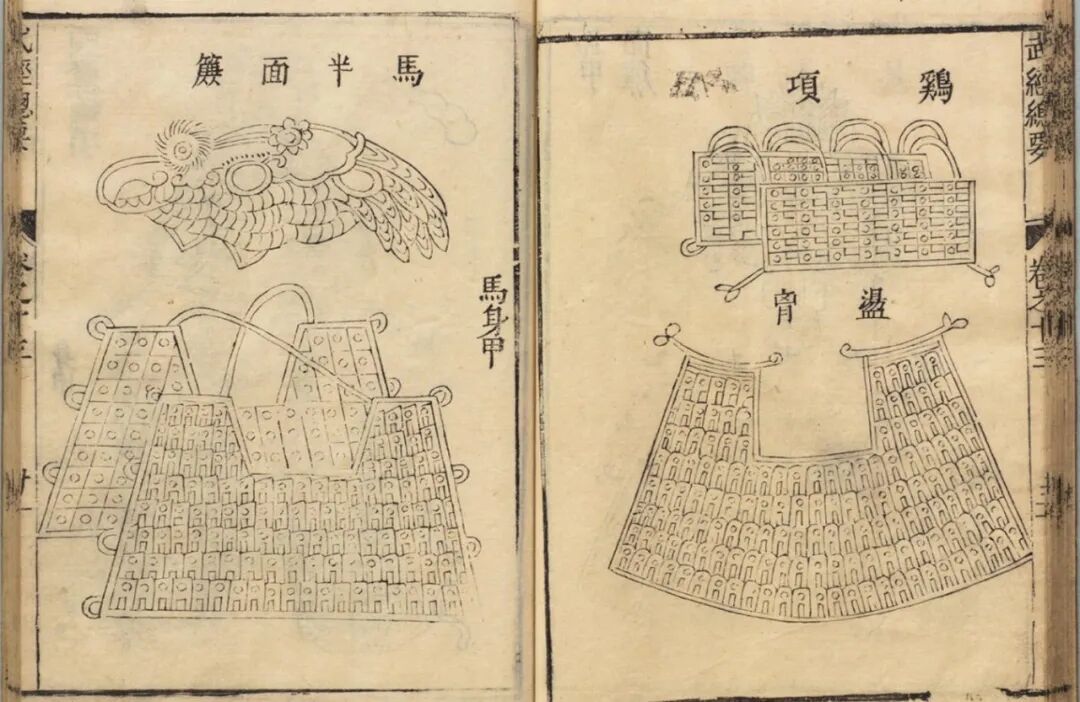 武經總要
卷之十三
鷄項
盪胷
馬半面簾
馬身甲